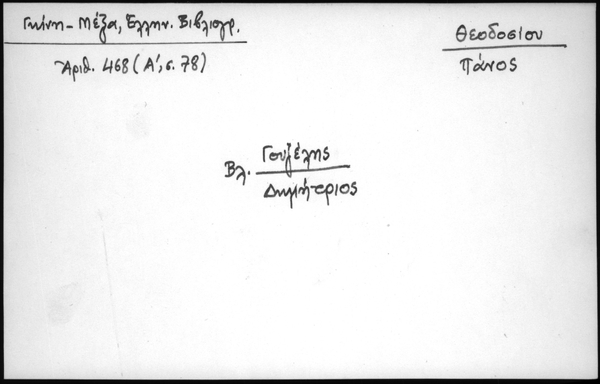 Γκίνη - Μέξα, Ἑλλην. Βιβλιογρ.
Ἀριθ. 468 (Α΄, σ. 78)
Θεοδοσίου
Πάνος
Βλ. Γουζέλης
Δημήτριος